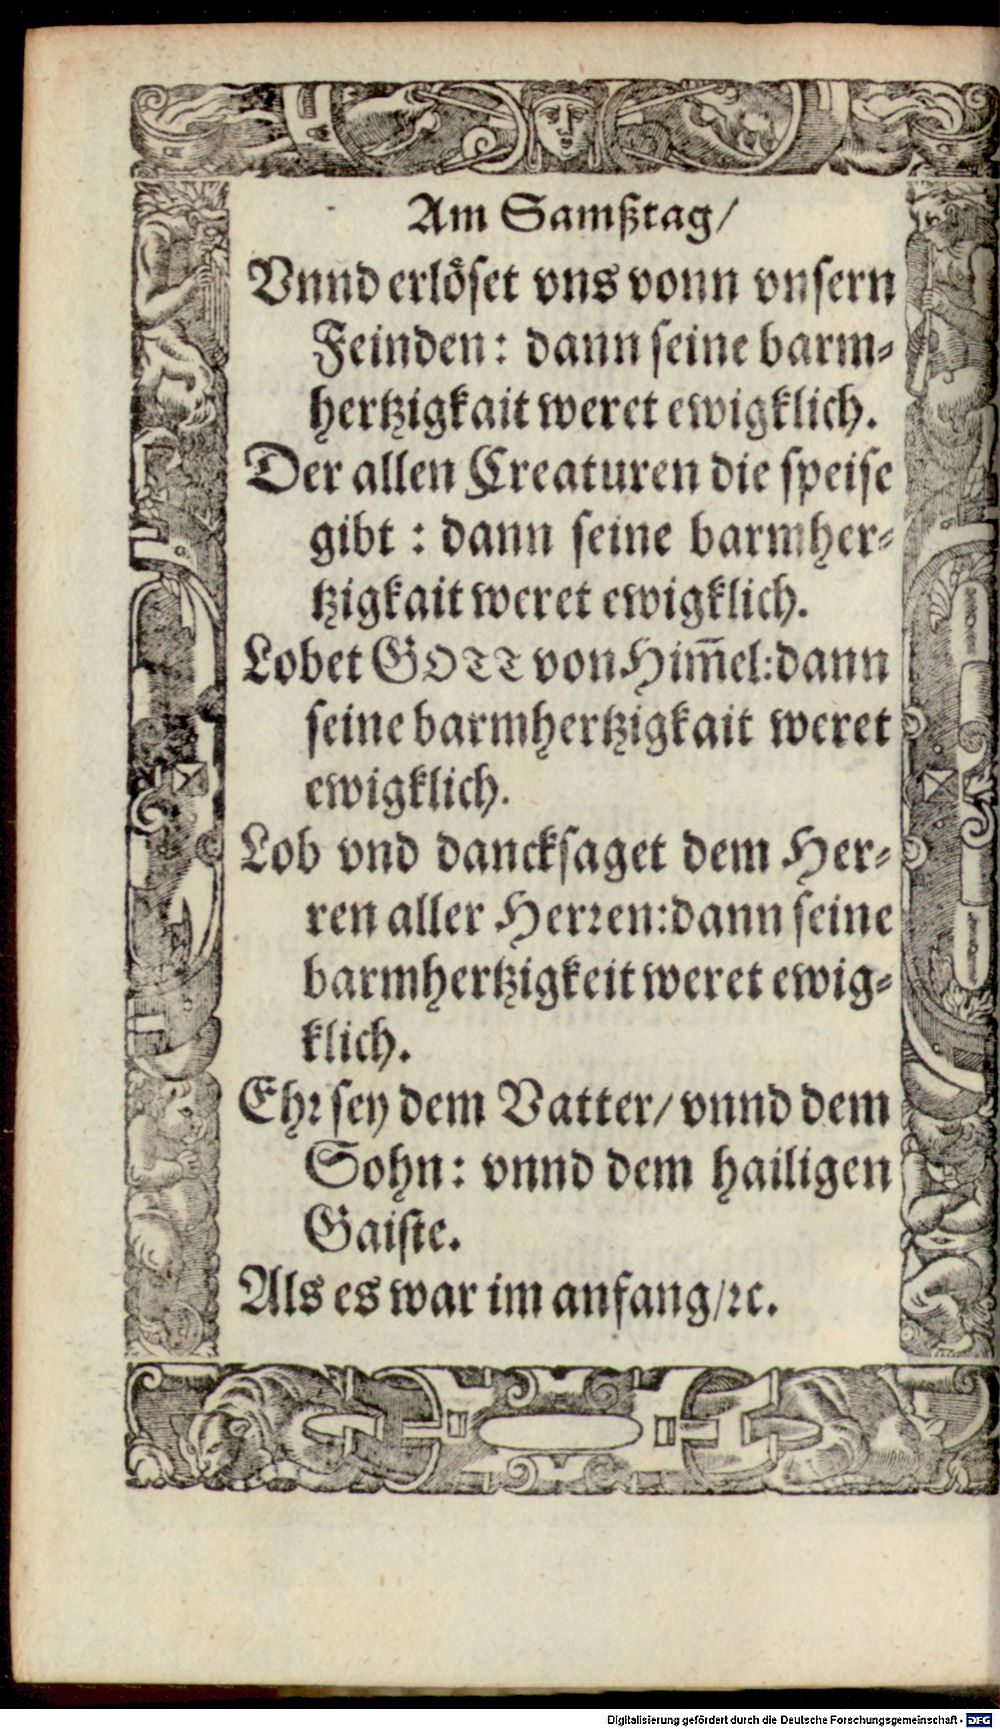 Am Samßtag/
Vnnd erlöset vns vonn vnsern
Feinden: dann seine barm-
hertzigkait weret ewigklich.
Der allen Creaturen die speise
gibt : dann seine barmher-
tzigkait weret ewigklich.
Lobet GOTT von Him̄el:dann
seine barmhertzigkait weret
ewigklich.
Lob vnd dancksaget dem Her-
ren aller Herꝛen:dann seine
barmhertzigkeit weret ewig-
klich.
Ehꝛ sey dem Vatter/ vnnd dem
Sohn: vnnd dem hailigen
Gaiste.
Als es war im anfang/ꝛc.
Digitalisierung gefördert durch die Deutsche Forschungsgemeinschaft - DFG